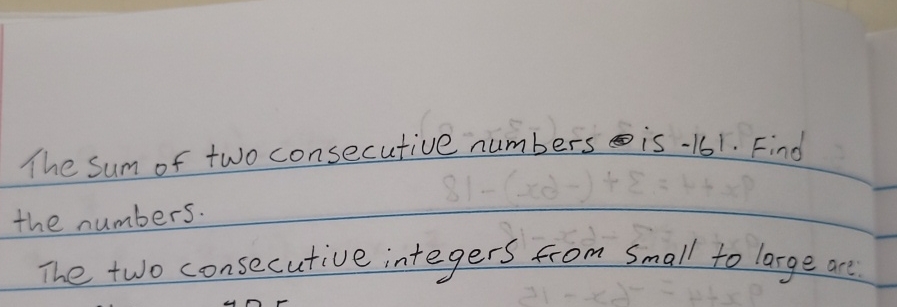 The sum of two consecutive numbers is -161. Find
the numbers.
The two consecutive integers from small to large are: